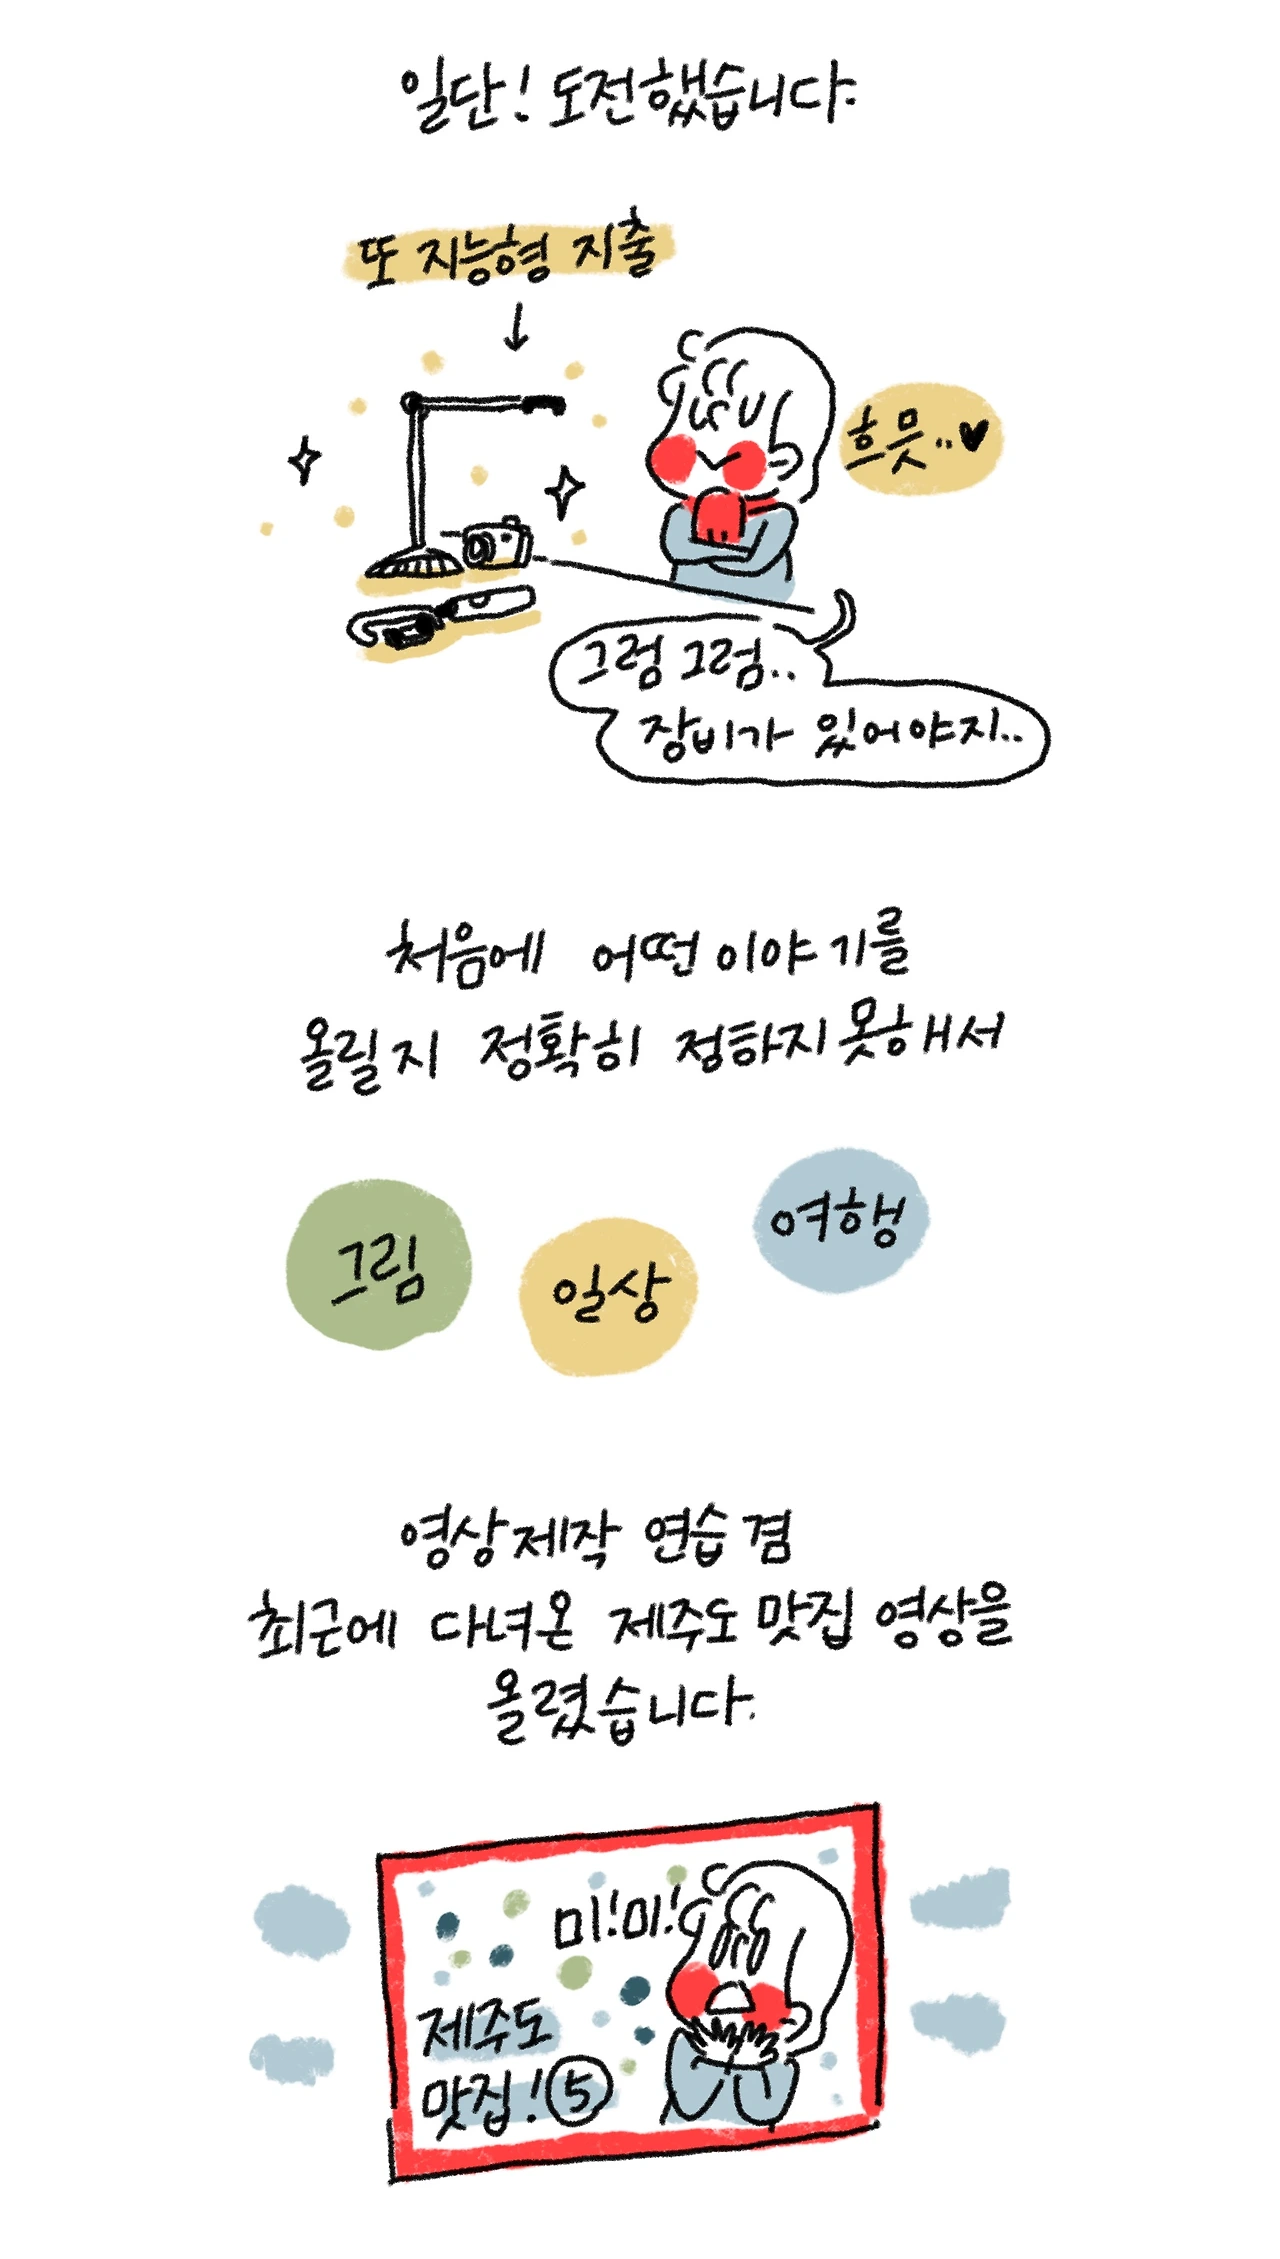 일단! 도전했습니다.
또 지능형 지출
흐뭇..♥
그럼 그럼..
장비가 있어야지..
처음에 어떤 이야기를
올릴지 정확히 정하지 못해서
그림
일상
여행
영상제작 연습 겸
최근에 다녀온 제주도 맛집 영상을
올렸습니다.
미!미!
제주도
맛집! ⑤